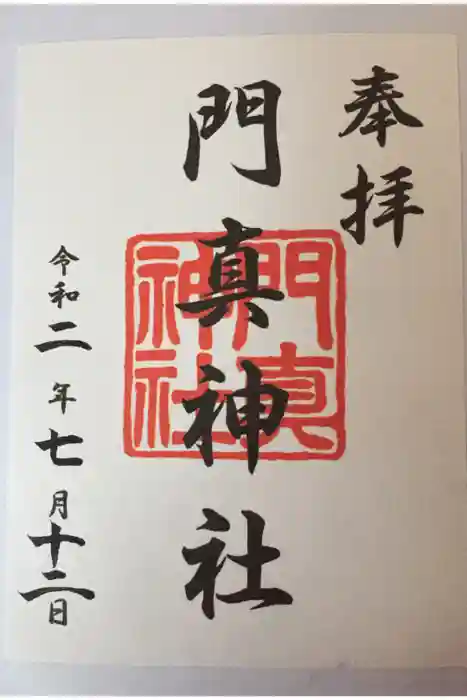 奉拝
門真神社
門真神社
令和二年七月十二日